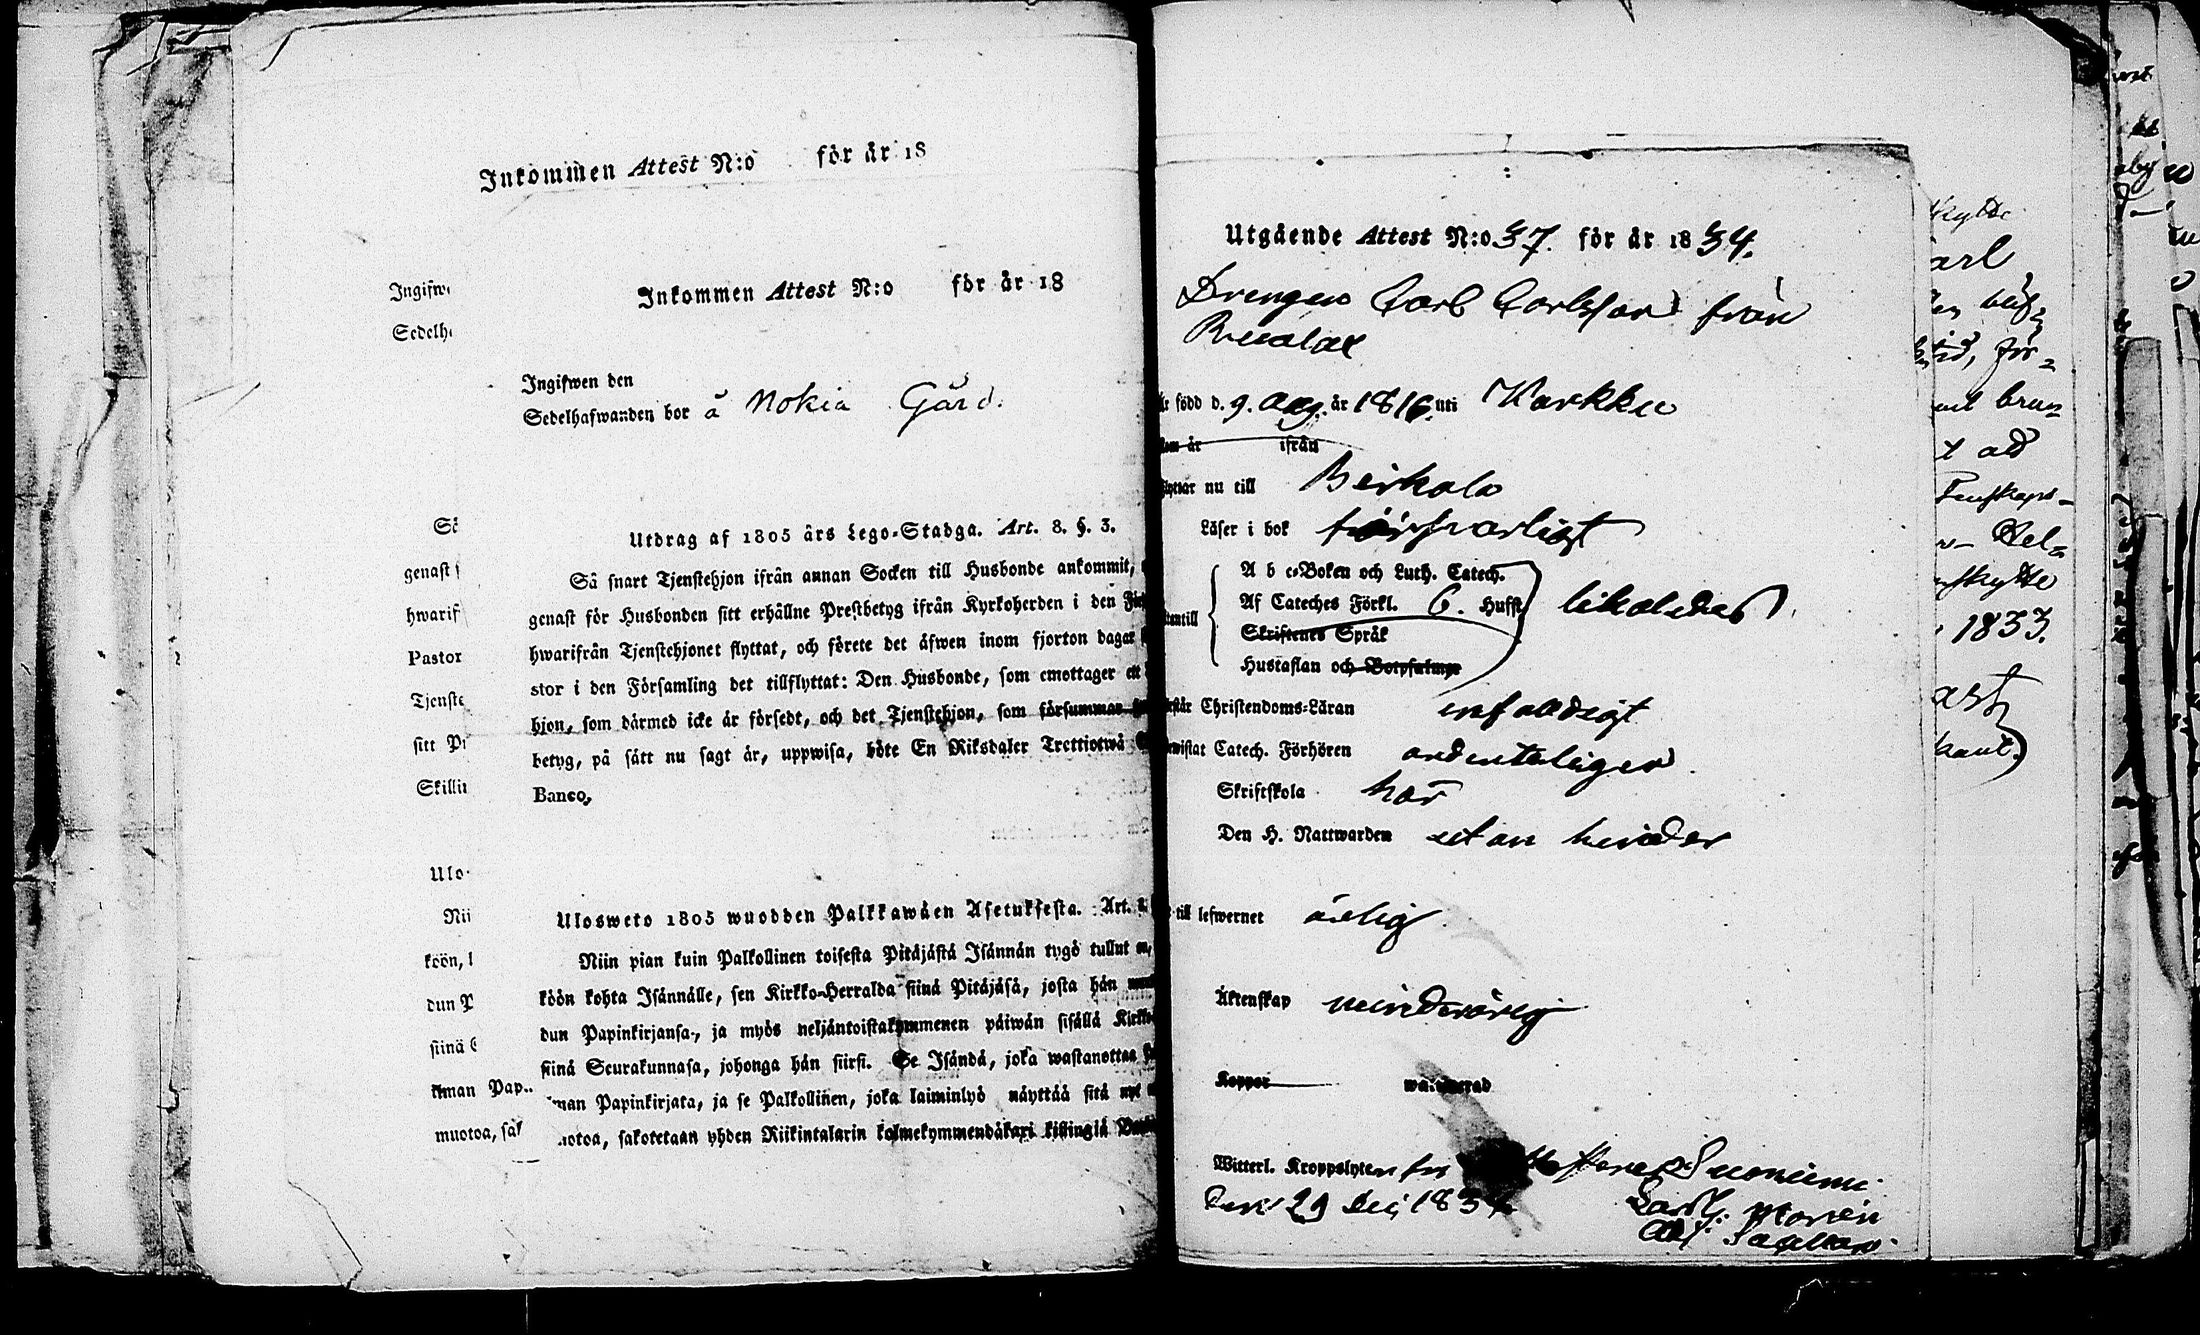 Inkommen Attest N:o för år 18
Inkommen Attest N:o för år 18
Ingifwen den
Sedelhafwanden bor å Nokia Gård.
Utdrag af 1805 års Lego-Stadga. Art. 8. §. 3.
Så snart Tjenstehjon ifrån annan Socken till Husbonde ankommit,
genast för Husbonden sitt erhållne Prestbetyg ifrån Kyrkoherden i den
hwarifrån Tjenstehjonet flyttat, och förete det äfwen inom fjorton dagar
stor i den Församling det tillflyttat: Den Husbonde, som emottager ett
hjon, som därmed icke är försedt, och det Tjenstehjon, som försummar
betyg, på sätt nu sagt är, uppwisa, böte En Riksdaler Trettiotwå
Banco.
Ulosweto 1805 wuodden Palkkawäen Asetuksesta. Art. 8
Niin pian kuin Palkollinen toisesta Pitäjästä Isännän tygö tullut on,
köön kohta Isännälle, sen Kirkko-Herralda siinä Pitäjäsä, josta hän
dun Papinkirjansa, ja myös neljäntoistakymmenen päiwän sisällä
siinä Seurakunnasa, johonga hän siirsi. Se Isändä, joka wastanottaa
ilman Papinkirjata, ja se Palkollinen, joka laiminlyö näyttää sitä nyt
muotoa, sakotetaan yhden Riikintalarin kolmekymmendäkaxi killingiä
Ingifw
Sedelh
genast
hwarif
Pastor
Tjenste
sitt Pr
Skillin
Ulo
Nii
köön,
dun P
siinä
ilman Pap
muotoa, sak
Utgående Attest N:o 37. för år 1834.
Drengen Carl Carlsson från
född d. 9. Aug. år 1816. uti Karkku
ifrån
flyttar nu till Birkala
Läser i bok försvarligt
A b c-Boken och Luth. Catech.
Af Cateches Förkl. 6. Hufst. likaledes
Skriftenes Språk
Hustaflan och Botpsalmer
Christendoms-Läran enfaldigt
Catech. Förhören ordenteligen
Skriftskola här
Den H. Nattwarden utan hinder
till lefwernet ärlig
Äktenskap minderårig
Koppor waccinerad
Witterl. Kroppslyten fri Suoniemi
den 29 Dec 1834